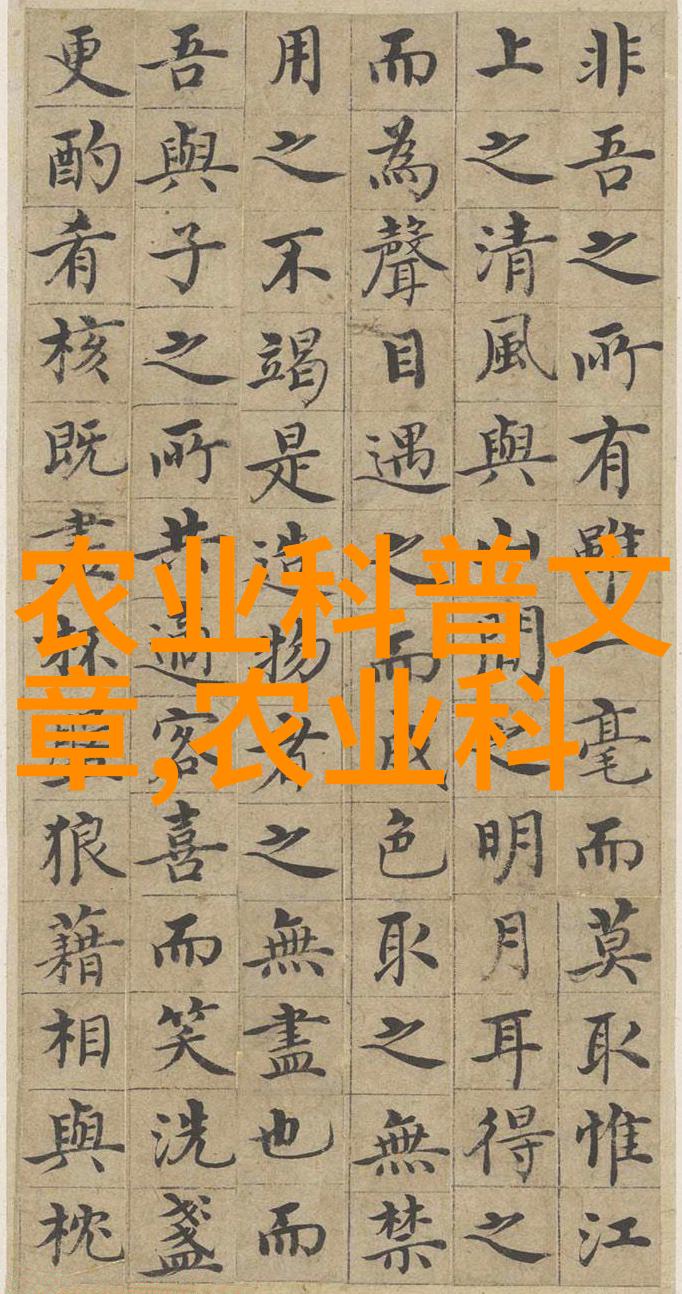 非吾之所有雖一毫而莫取惟江
上之清風與山間之明月耳得之
而為聲目遇之而成色取之無禁
用之不竭是造物者之無盡也而
吾與子之所共適客喜而笑洗盞
更酌肴核既盡杯盤狼藉相與枕
农业科普文
章,农业科